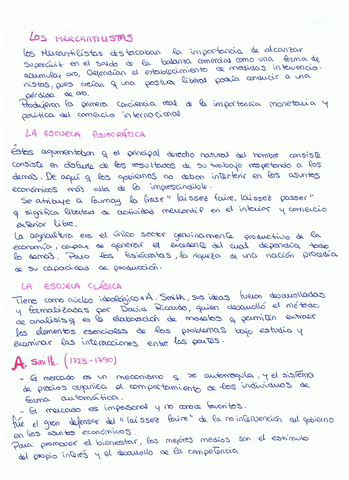 LOS MERCANTILISTAS
Los Mercantilistas destacaban la importancia de alcanzar
superávit en el saldo de la balanza comercial como una forma de
acumular oro. Defendían el establecimiento de medidas intervencio-
nistas, pues creían q una postura liberal podía conducir a una
pérdida de oro.
Produjeron la primera conciencia real de la importancia monetaria y
política del comercio internacional
LA ESCUELA FISIOCRÁTICA
Éstos argumentaban q el principal derecho natural del hombre consiste
consiste en disfrute de los resultados de su trabajo respetando a los
demás. De aquí q los gobiernos no deben interferir en los asuntos
económicos más allá de lo imprescindible.
Se atribuye a Gournay la frase "laissez faire, laissez passer"
q significa libertad de actividad mercantil en el interior y comercio
exterior libre.
La agricultura era el único sector genuinamente productivo de la
economía, capaz de generar el excedente del cual dependía todo
lo demás. Para los fisiócratas, la riqueza de una nación procedía
de su capacidad de producción.
LA ESCUELA CLÁSICA
Tiene como núcleo ideológico a A. Smith, sus ideas fueron desarrolladas
y formalizadas por David Ricardo, quien desarrolló el método
de análisis q es la elaboración de modelos q permiten extraer
los elementos esenciales de los problemas bajo estudio y
examinar las interacciones entre las partes.
A. Smith. (1723-1790)
- El mercado es un mecanismo q se autorregula, y el sistema
de precios organiza el comportamiento de los individuos de
forma automática.
- El mercado es impersonal y no conoce favoritos.
Fue el gran defensor del "laissez faire" de la no intervención del gobierno
en los asuntos económicos.
Para promover el bienestar, los mejores medios son el estímulo
del propio interés y el desarrollo de la competencia